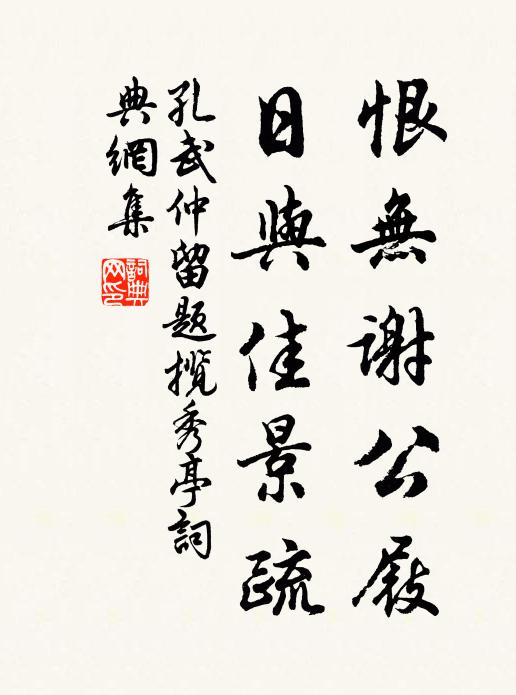 恨無謝公屐
日與佳景疏
孔武仲留題攬秀亭詞
典網集
詞典
网印